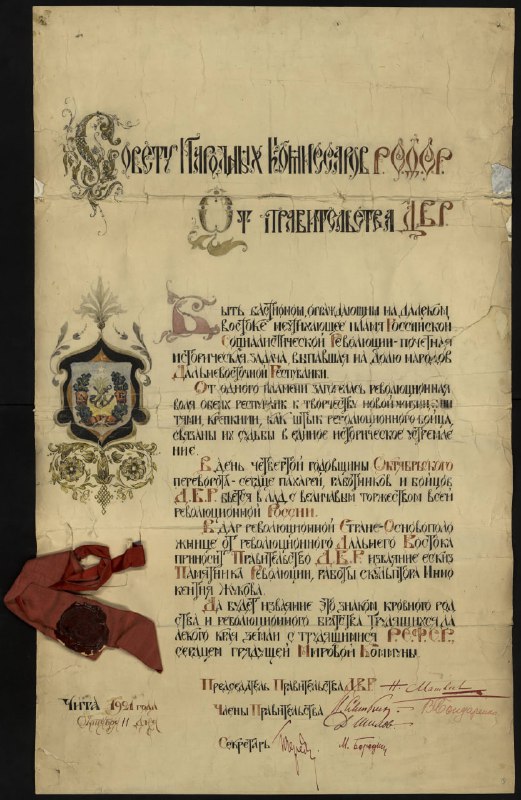 Совету Народных Комиссаров Р.С.Ф.С.Р.
От правительства Д.В.Р.
Быть бастионом, ограждающим на далеком
востоке неугихающее пламя Российской
Социалистической Революции - почетная
историческая задача, выпавшая на долю народов
Дальневосточной Республики.
От одного пламени зажглась революционная
воля обеих республик к творчеству новой жизни, и ни
тями, крепкими, как штык революционного бойца,
связаны их судьбы в единое историческое устремле
ние.
В день четвертой годовщины Октябрьского
переворота - сердце пахарей, работников и бойцов
Д.В.Р. бьется в лад с величавым торжеством всей
революционной России.
В дар революционной Стране-Основополо
жнице от революционного Дальнего Востока
приносит Правительство Д.В.Р. изваяние эскиз
Памятника Революции, работы скульптора Инно
кентия Жукова.
Да будет изваяние это знаком кровного род
ства и революционного братства трудящихся да
лекого края земли с трудящимися Р.С.Ф.С.Р.
сердцем грядущей Мировой Коммуны.
Председатель Правительства Д.В.Р. Н. Матвеев
Члены Правительства В. Бондаренко
Д. Шилов
Секретарь М. Бородин
Чита 1921 года
11 дня